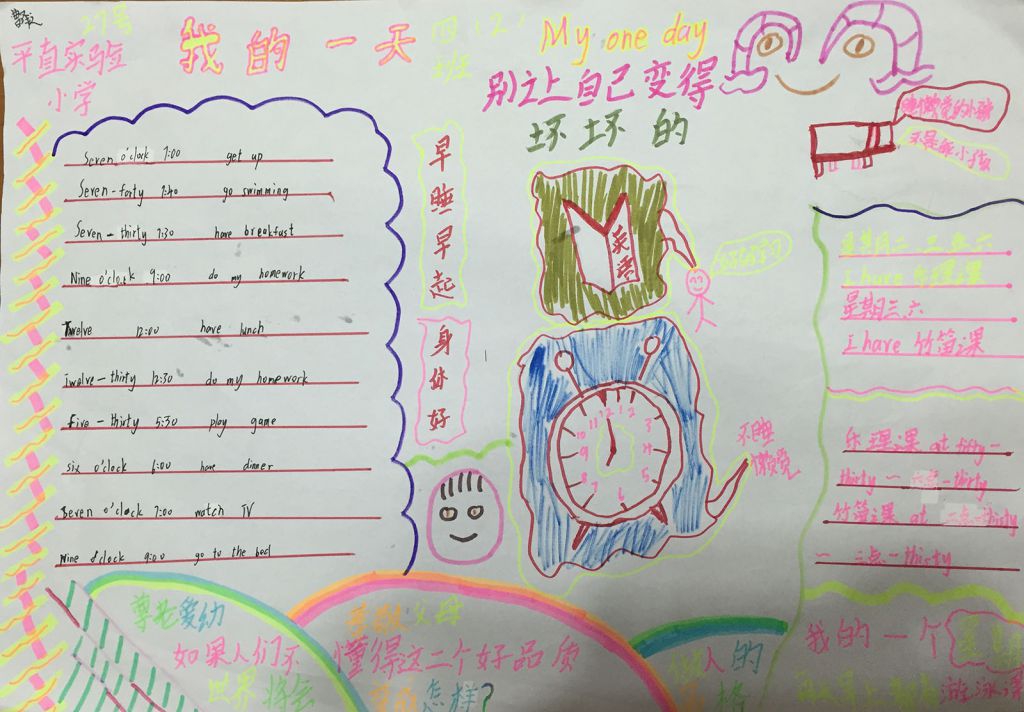 27号
平直实验
小学
我的一天
四(2)
班
My one day
别让自己变得
坏坏的
睡懒觉的小孩
不是好小孩
Seven o'clock 7:00 get up
Seven-forty 7:40 go swimming
Seven-thirty 7:30 have breakfast
Nine o'clock 9:00 do my homework
Twelve 12:00 have lunch
Twelve-thirty 12:30 do my homework
Five-thirty 5:30 play game
six o'clock 6:00 have dinner
Seven o'clock 7:00 watch TV
Nine o'clock 9:00 go to the bed
早睡早起
身体好
英语
12 1 2 3 4 5 6 7 8 9 10 11
不睡
懒觉
星期二
i have 乐理课
星期三.六
i have 竹笛课
乐理课 at fifty-
thirty 一 六点-thirty
竹笛课 at 二点-thirsty
一 三点-thirsty
尊老爱幼
如果人们不
世界将会
孝敬父母
懂得这二个好品质
怎样?
人的
格
我的一个
游泳课